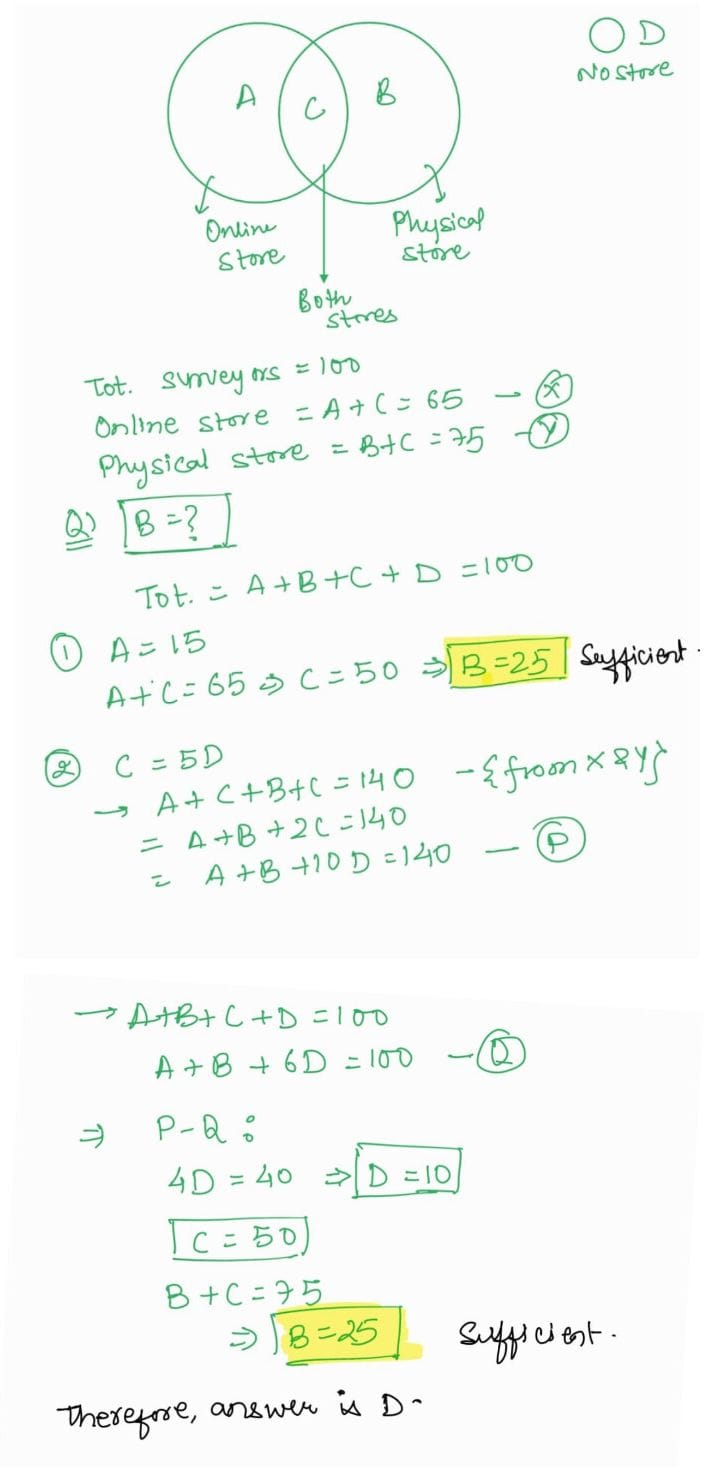 A C B
O D
No store
Online
store
Physical
store
Both
stores
Tot. surveyors = 100
Online store = A + C = 65 - X
Physical store = B+C = 75 - Y
Q) B = ?
Tot. = A + B + C + D = 100
1 A = 15
A + C = 65 ⇒ C = 50 ⇒ B = 25 Sufficient.
2 C = 5D
→ A + C + B + C = 140 - {from X & Y}
= A + B + 2C = 140
= A + B + 10D = 140 - P
→ A+B+ C + D = 100
A + B + 6D = 100 - Q
⇒ P-Q :
4D = 40 ⇒ D = 10
C = 50
B + C = 75
⇒ B = 25 Sufficient.
Therefore, answer is D.